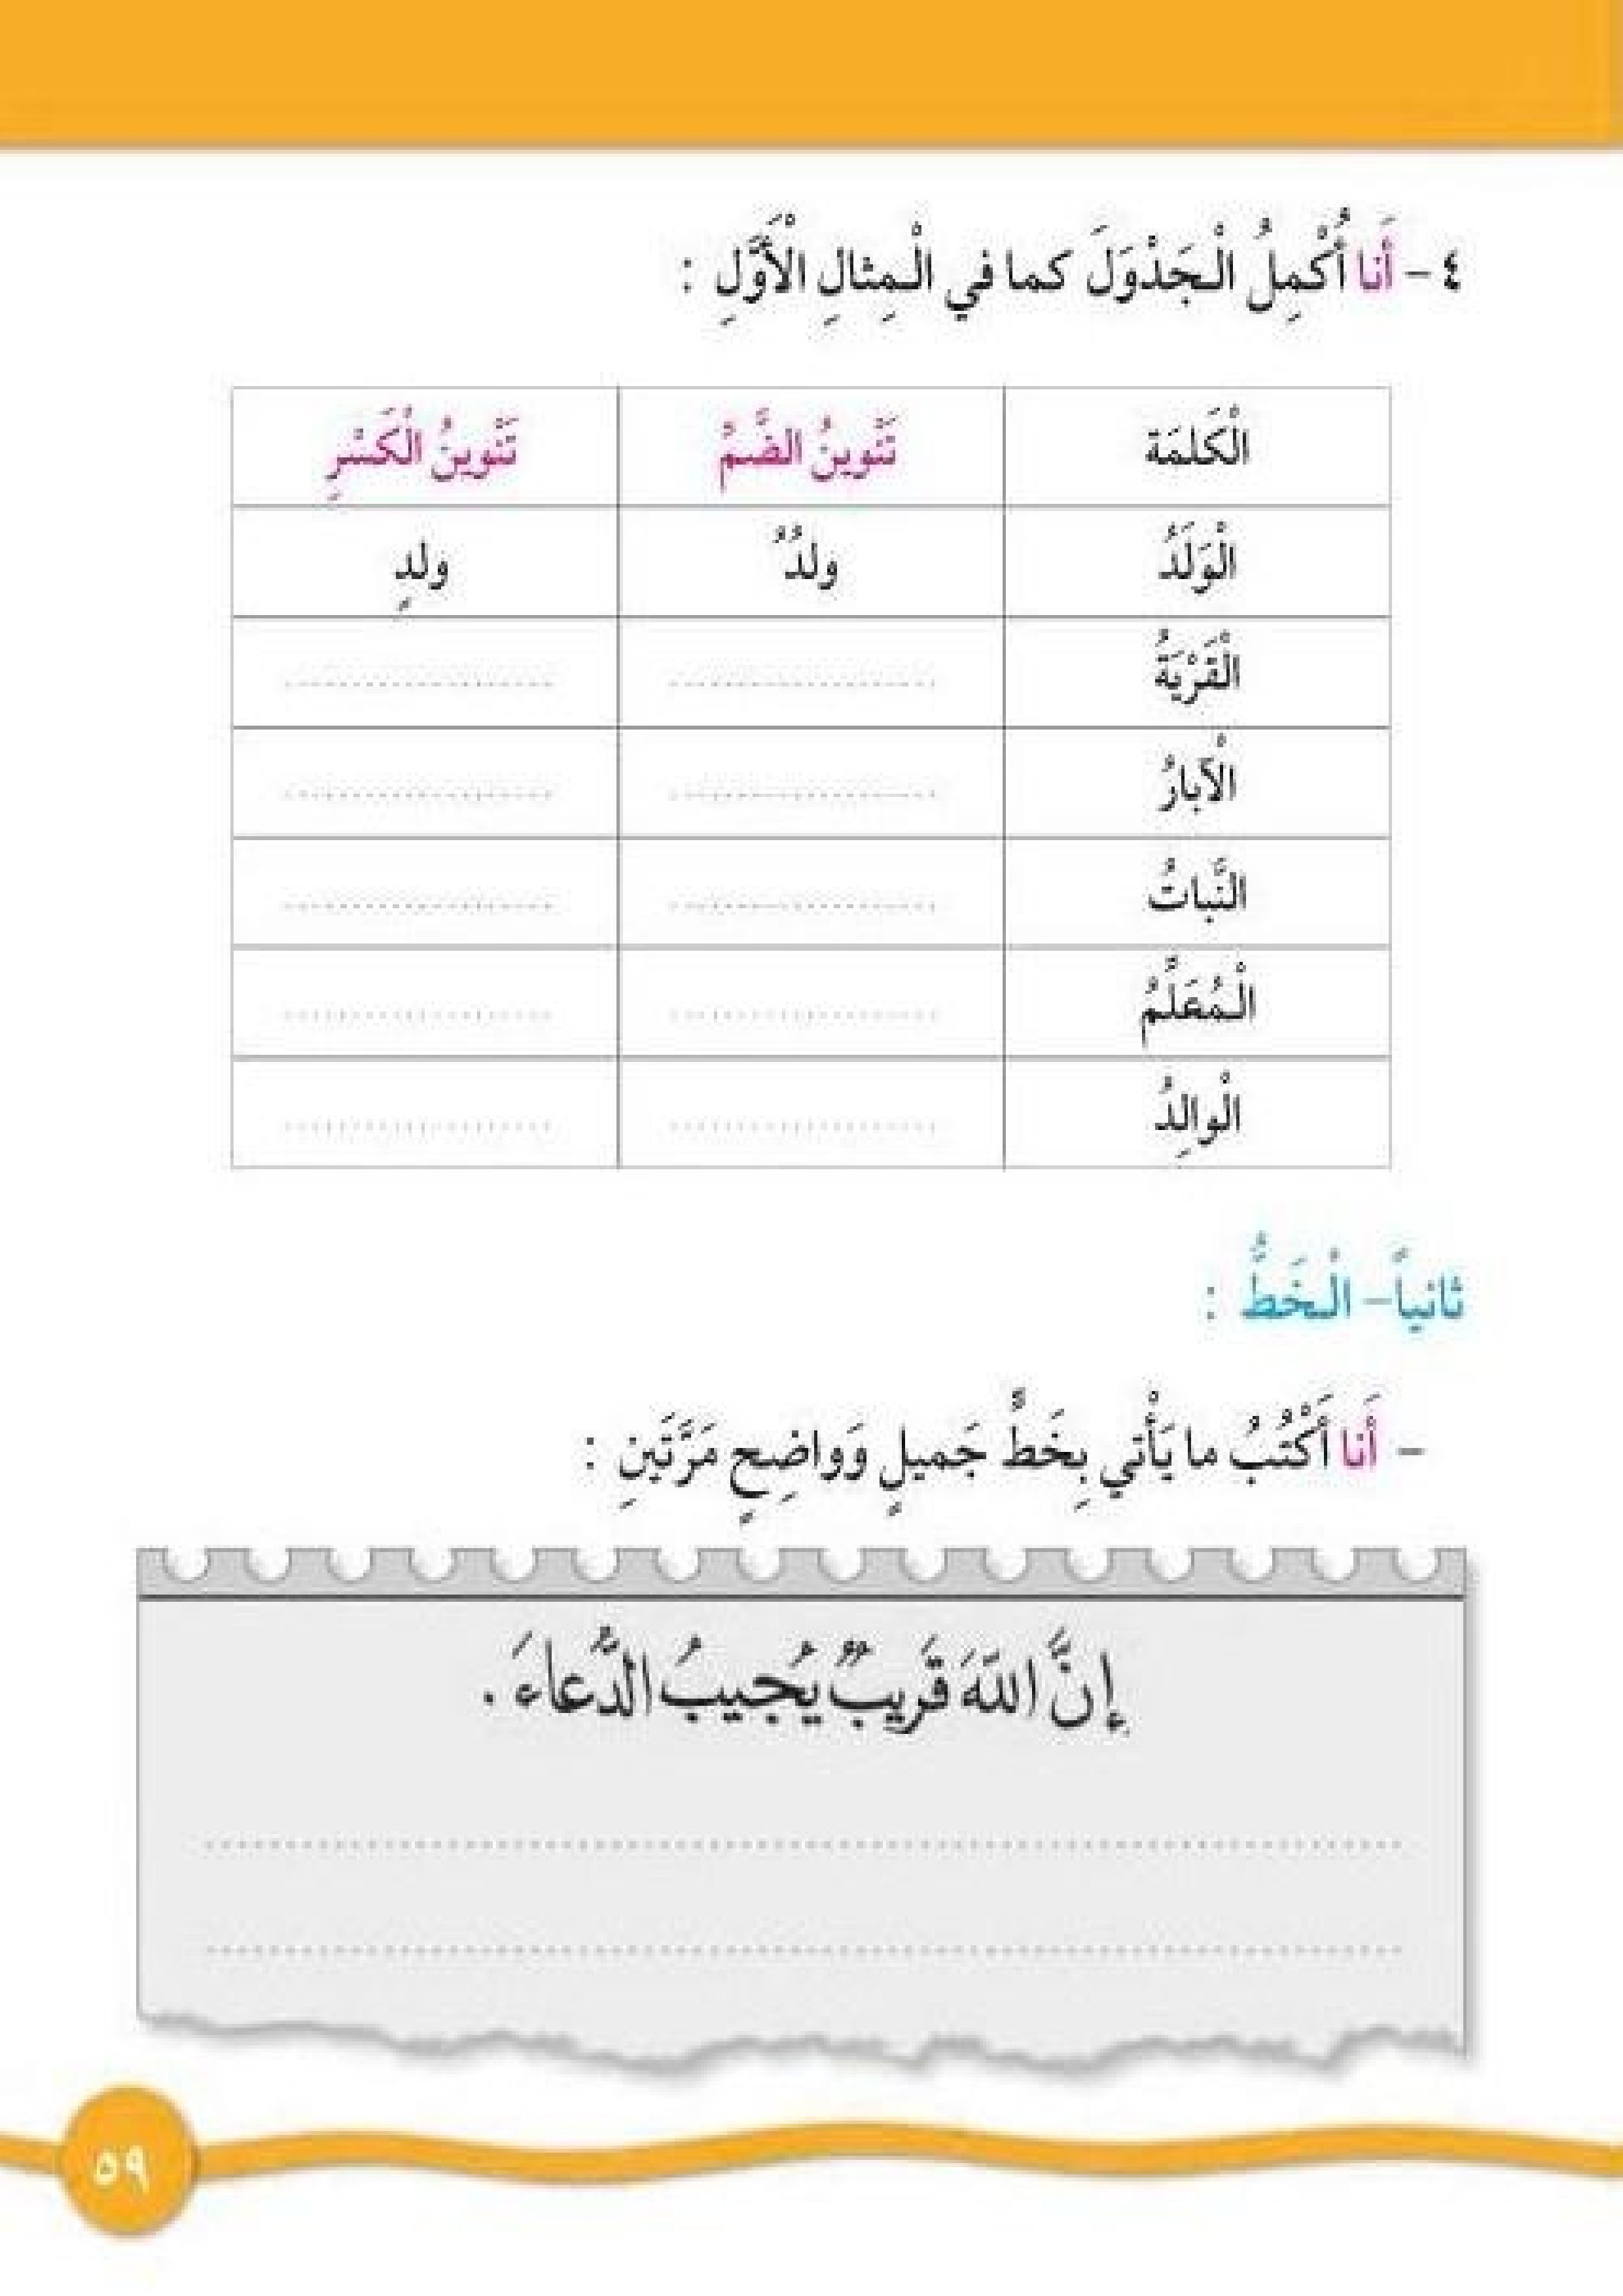 ٤ - أَنا أُكْمِلُ الْجَدْوَلَ كما في الْمِثالِ الْأَوَّلِ :
الْكَلمَة تَنْوينُ الضَّمِّ تَنْوينُ الْكَسْرِ
الْوَلَدُ ولدٌ ولدٍ
الْقَرْيَةُ
الْآبارُ
النَّباتُ
الْمُعَلِّمُ
الْوالِدُ
ثانياً - الْخَطُّ :
- أَنا أَكْتُبُ ما يَأْتي بِخَطٍّ جَميلٍ وَواضِحٍ مَرَّتَينِ :
إِنَّ اللّٰهَ قَرِيبٌ يُجيبُ الدُّعاءَ .
٥٩